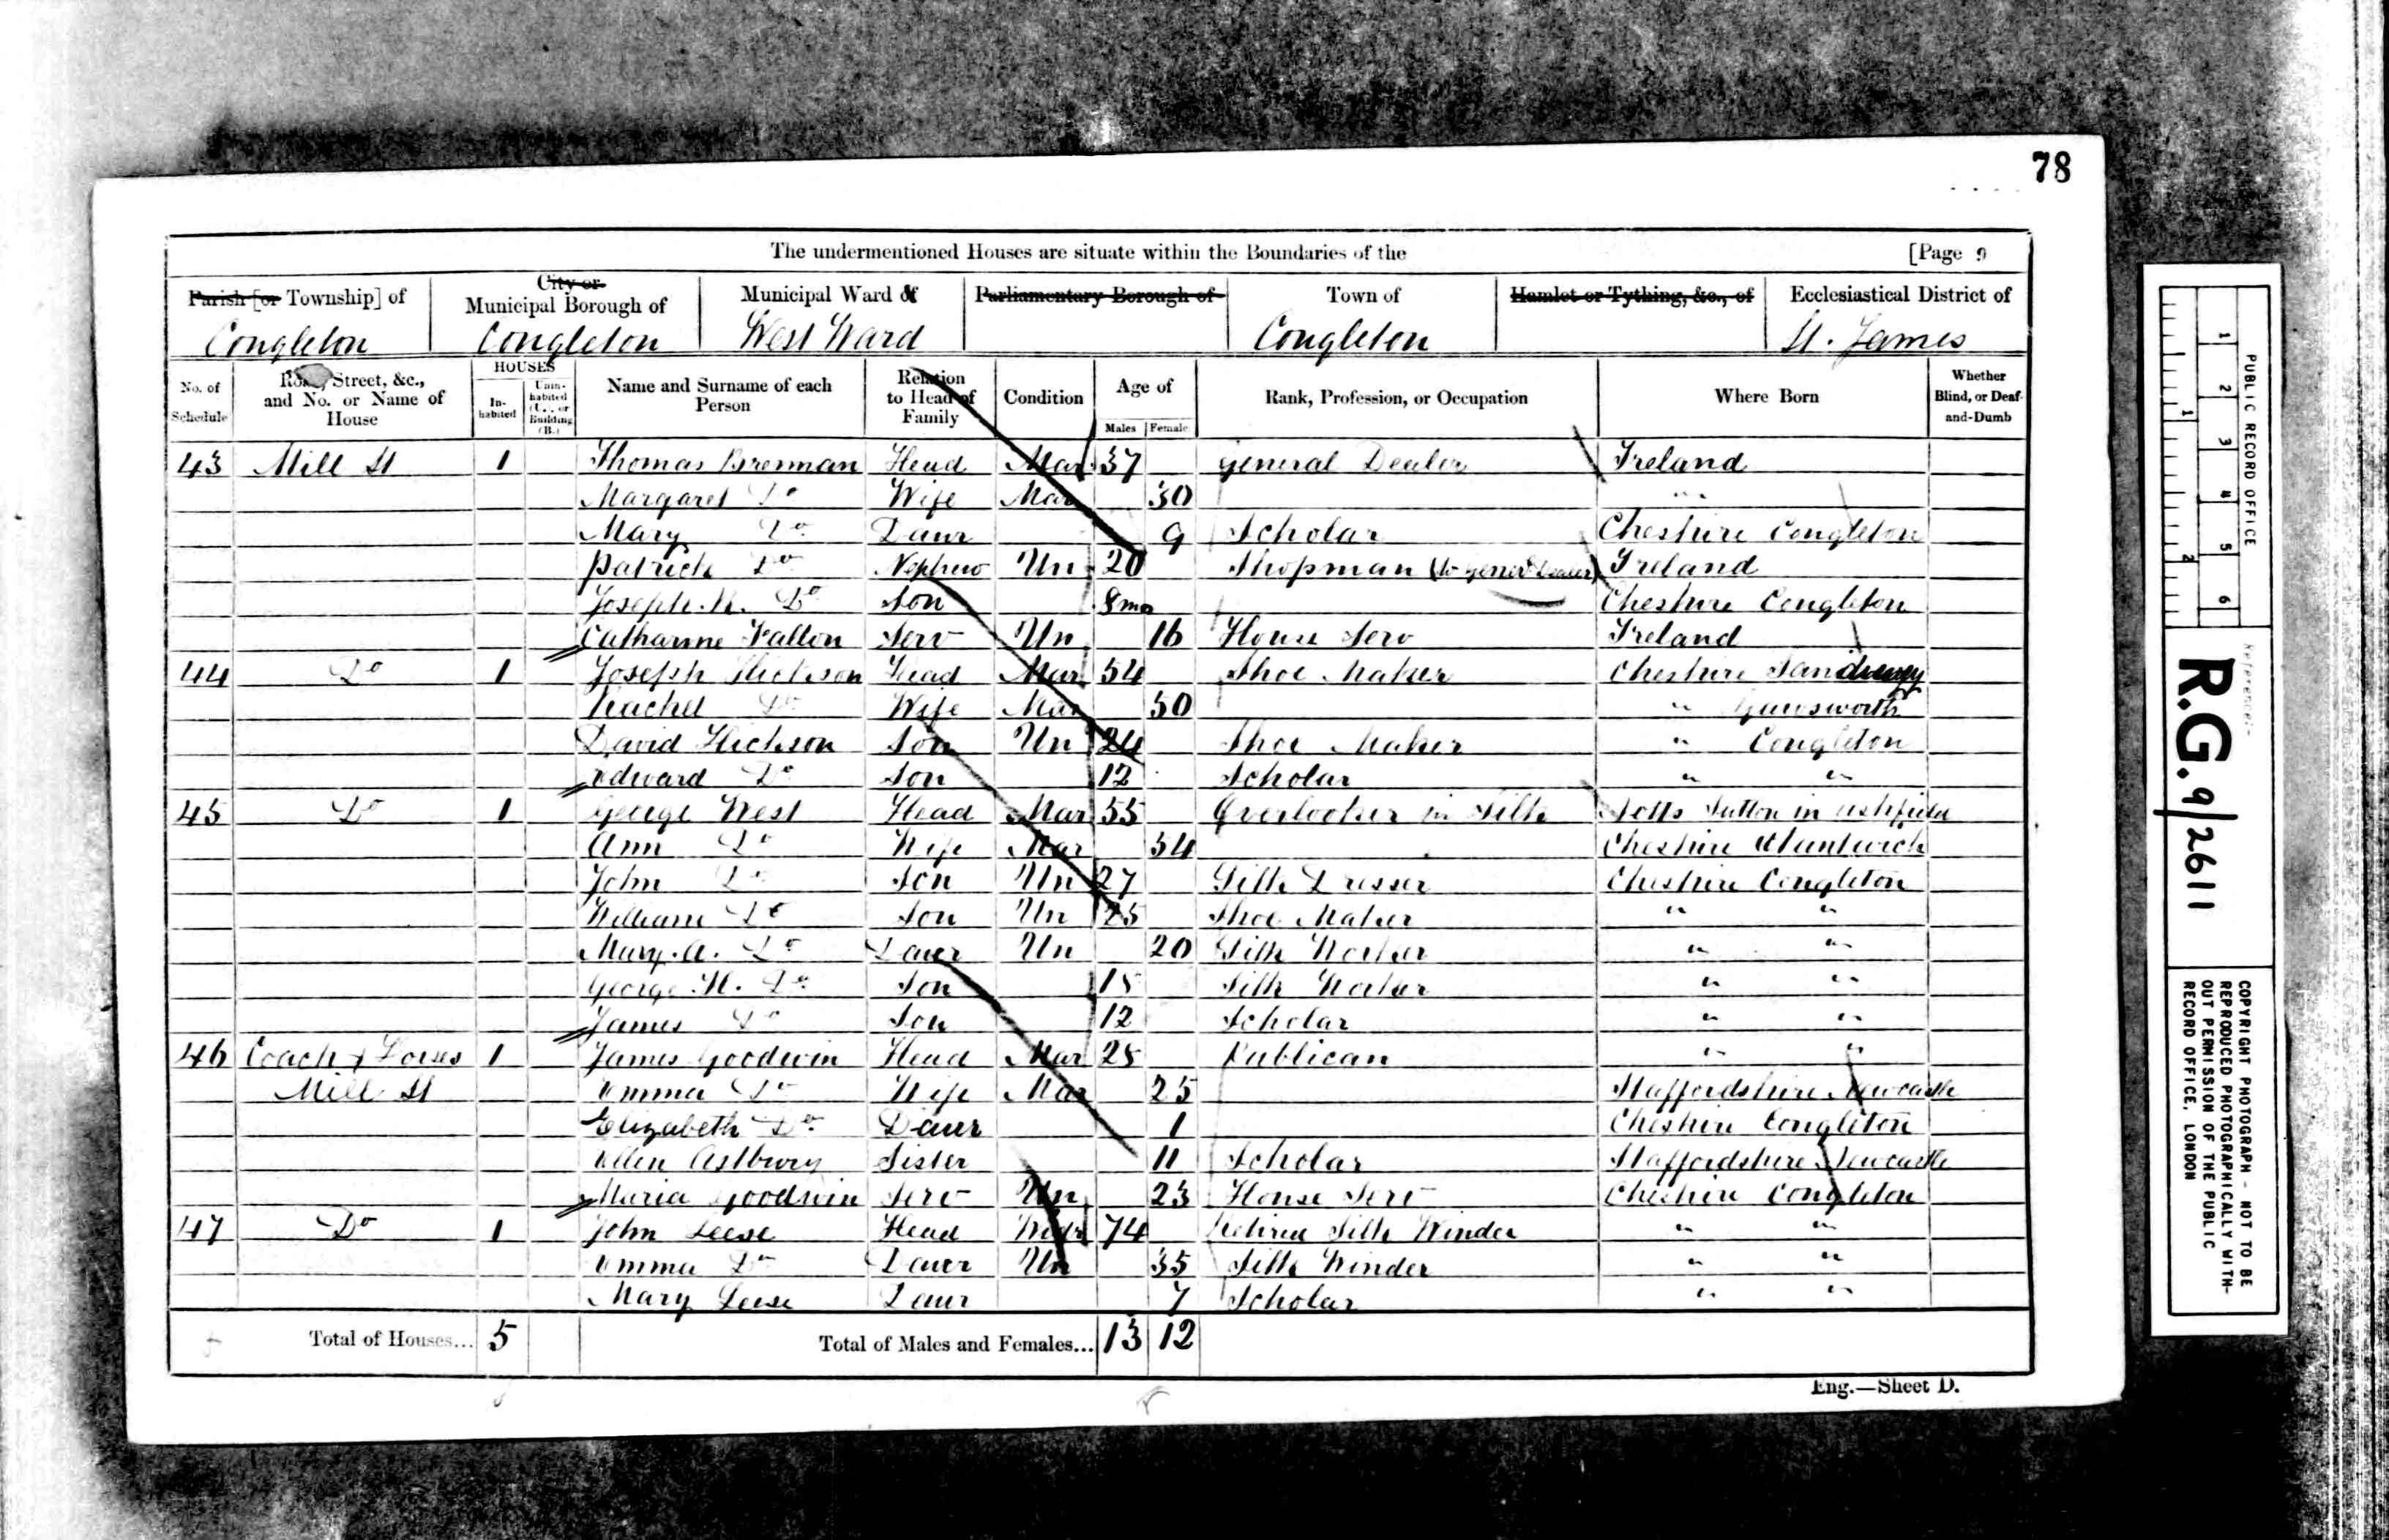 78
The undermentioned Houses are situate within the Boundaries of the [Page 9
Parish [or Township] of City or Municipal Borough of Municipal Ward of Parliamentary Borough of Town of Hamlet or Tything, &c., of Ecclesiastical District of
Congleton Congleton West Ward Congleton St. James
No. of Schedule Road, Street, &c., and No. or Name of House HOUSES In-habited Unin-habited (U.), or Building (B.) Name and Surname of each Person Relation to Head of Family Condition Age of Males Female Rank, Profession, or Occupation Where Born Whether Blind, or Deaf-and-Dumb
43 Mill St 1 Thomas Brennan Head Mar 37 General Dealer Ireland
Margaret Do Wife Mar 30 "
Mary Do Daur 9 Scholar Cheshire Congleton
Patrick Do Nephew Un 20 Shopman (to Genel Dealer) Ireland
Joseph. Do Son 8 mo Cheshire Congleton
Catharine Serv Un 16 House Serv Ireland
44 Do 1 Joseph Hickson Head Mar 54 Shoe Maker Cheshire
Rachel Do Wife Mar 50 " Gawsworth
David Hickson Son Un 24 Shoe Maker " Congleton
Edward Do Son 12 Scholar " "
45 Do 1 George West Head Mar 55 Overlooker in Silk Notts Sutton in Ashfield
Ann Do Wife Mar 54 Cheshire Nantwich
John Do Son Un 27 Silk Dresser Cheshire Congleton
William Do Son Un 25 Shoe Maker " "
Mary. A. Do Daur Un 20 Silk Worker " "
George. H. Do Son 15 Silk Worker " "
James Do Son 12 Scholar " "
46 Coach & Horses 1 James Goodwin Head Mar 25 Publican " "
Mill St Emma Do Wife Mar 25 Staffordshire Newcastle
Elizabeth Do Daur 1 Cheshire Congleton
Ellen Astbury Sister 11 Scholar Staffordshire Newcastle
Maria Goodwin Serv Un 23 House Serv Cheshire Congleton
47 Do 1 John Leese Head Widr 74 Retired Silk Winder " "
Emma Do Daur Un 35 Silk Winder " "
Mary Leese Daur 7 Scholar " "
Total of Houses... 5 Total of Males and Females... 13 12
Eng.—Sheet D.
1 2 3 4 5 6
1 2
PUBLIC RECORD OFFICE
Reference:-
R.G. 9/2611
COPYRIGHT PHOTOGRAPH - NOT TO BE
REPRODUCED PHOTOGRAPHICALLY WITH-
OUT PERMISSION OF THE PUBLIC
RECORD OFFICE, LONDON